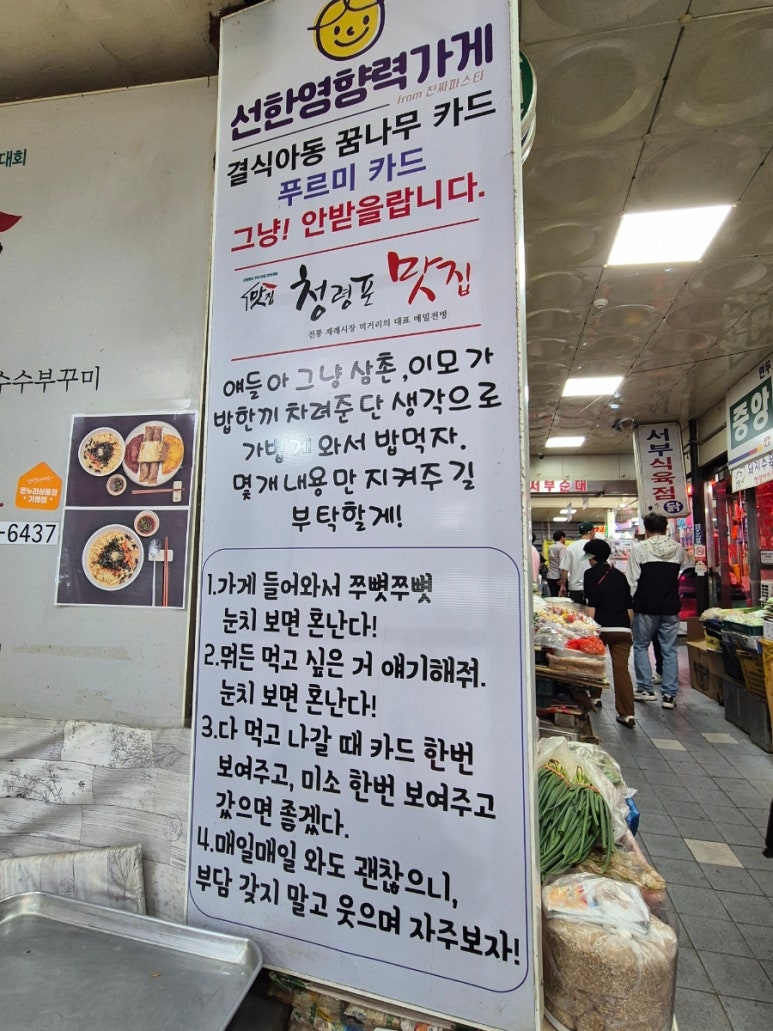 선한영향력가게
from 진짜파스타
결식아동 꿈나무 카드
푸르미 카드
그냥! 안받을랍니다.
맛집
청령포 맛집
전통 재래시장 먹거리의 대표 메밀전병
얘들아 그냥 삼촌,이모가
밥한끼 차려준단 생각으로
가볍게 와서 밥먹자.
몇개 내용만 지켜주길
부탁할게!
1.가게 들어와서 쭈뼛쭈뼛
눈치 보면 혼난다!
2.뭐든 먹고 싶은 거 얘기해줘.
눈치 보면 혼난다!
3.다 먹고 나갈 때 카드 한번
보여주고, 미소 한번 보여주고
갔으면 좋겠다.
4.매일매일 와도 괜찮으니,
부담 갖지 말고 웃으며 자주보자!
대회
수수부꾸미
온누리상품권
가맹점
-6437
서부순대
서부식육점
닭
중앙